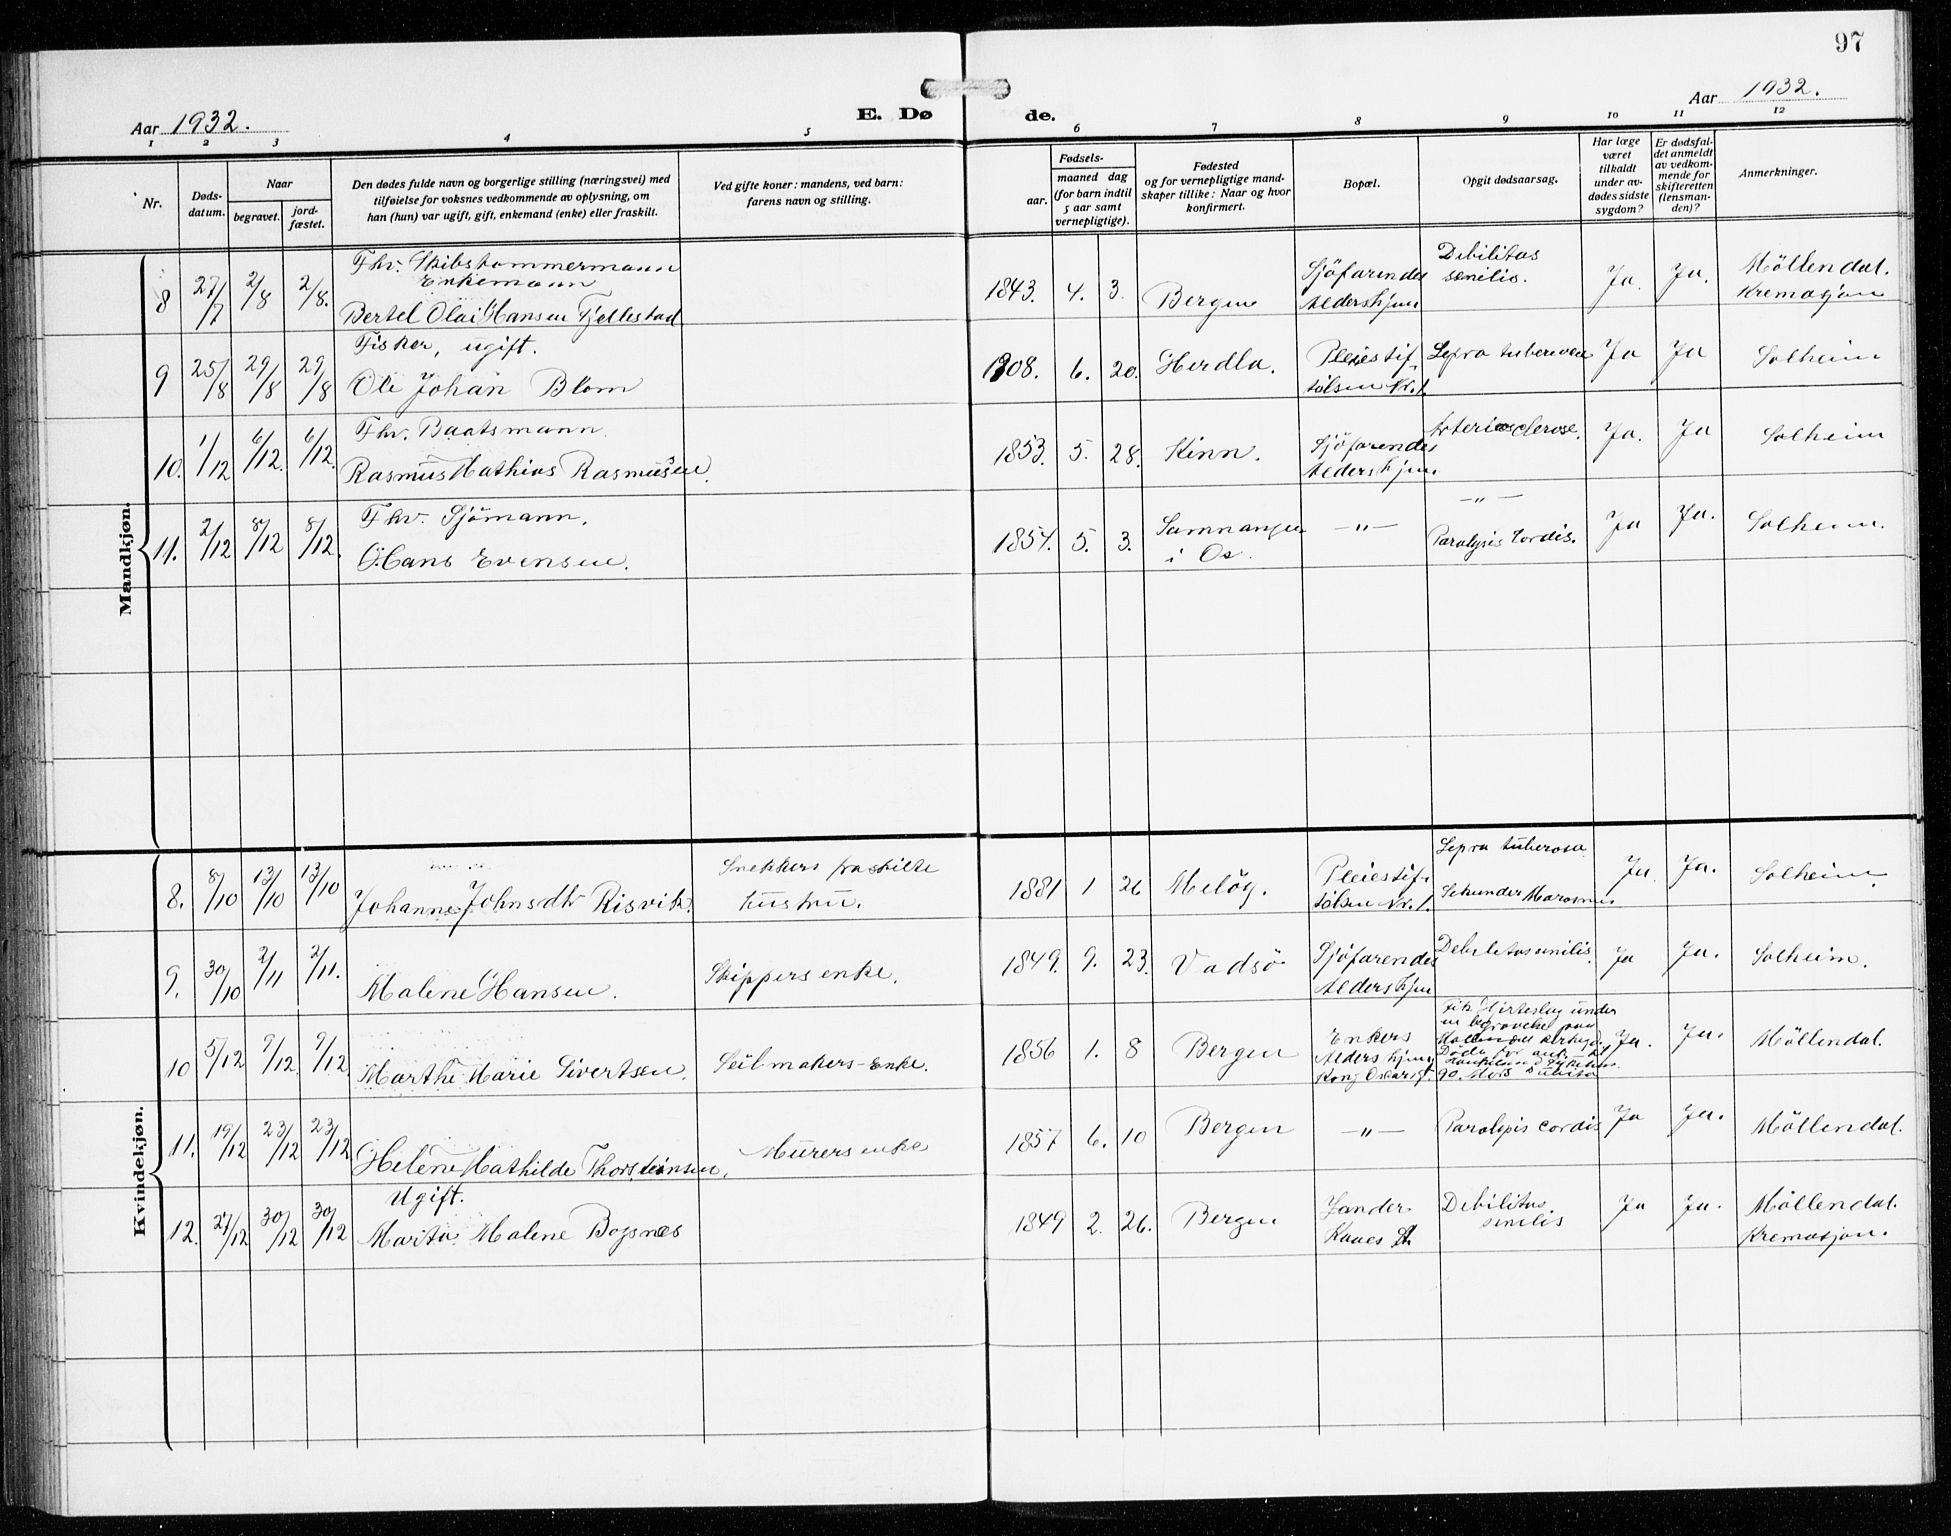 97
Aar 1932. E. Døde. Aar 1932.
1 2 3 4 5 6 7 8 9 10 11 12
Nr. Døds-datum. Naar begravet. jord-fæstet. Den dødes fulde navn og borgerlige stilling (næringsvei) med tilføielse for voksnes vedkommende av oplysning, om han (hun) var ugift, gift, enkemand (enke) eller fraskilt. Ved gifte koner: mandens, ved barn: farens navn og stilling. Fødsels- aar. maaned dag (for barn indtil 5 aar samt vernepligtige). Fødested og for vernepligtige mand-skaper tillike: Naar og hvor konfirmert. Bopæl. Opgit dødsaarsag. Har læge været tilkaldt under av-dødes sidste sygdom? Er dødsfal-det anmeldt av vedkom-mende for skifteretten (lensman-den)? Anmerkninger.
Mandkjøn.
Fhv. Skibstømmermann
Enkemann
8 27/7 2/8 2/8. Bertel Olai Hansen Fjellestad 1843. 4. 3. Bergen Sjøfarendes Aldershjem Debilitas senilis. Ja. Ja. Möllendal. Kremasjon
Fisker, ugift.
9 25/8 29/8 29/8 Ole Johan Blom 1908. 6. 20. Herdla. Pleiestif-telsen Nr. 1. Lepra Ja Ja Solheim
Fhv. Baatsmann
10. 1/12 6/12. 6/12. Rasmus Mathias Rasmussen. 1853. 5. 28. Kinn. Sjøfarendes Aldershjem. Arteriosclerose. Ja. Ja Solheim
Fhv. Sjömann.
11. 2/12 8/12 8/12. Hans Evensen. 1854. 5. 3. Samnanger i Os. —"— —"— Paralysis Cordis. Ja Ja. Solheim.
Kvindekjøn.
8. 8/10 13/10 13/10 Johanne Johnsdtr Risvik. Snekkers fraskilte hustru. 1881 1 26 Meløy. Pleiestif-telsen Nr. 1. Lepra tuberosa Sekundær Ja. Ja. Solheim
9. 30/10 2/11 2/11. Malene Hansen. Skippers enke. 1849. 9. 23. Vadsö Sjøfarendes Aldershjem Debilitas senilis. Ja Ja. Solheim.
10 5/12 9/12. 9/12. Marthe Marie Sivertsen. Seilmakers-Enke. 1856 1. 8 Bergen Enkers Aldershjem Kong Oscarsgt. Fik Hjerteslag under en begravelse paa Ja. Ja. Möllendal.
11. 19/12 23/12 23/12 Helene Mathilde Thorsteinsen. Murers enke 1857 6. 10 Bergen —"— Paralysis cordis Ja Ja. Möllendal.
Ugift.
12. 27/12 30/12 30/12 Marta Malene Bognæs 1849 2. 26. Bergen Sander Kaaes St. Debilitas. senilis Ja Ja. Möllendal. Kremasjon.